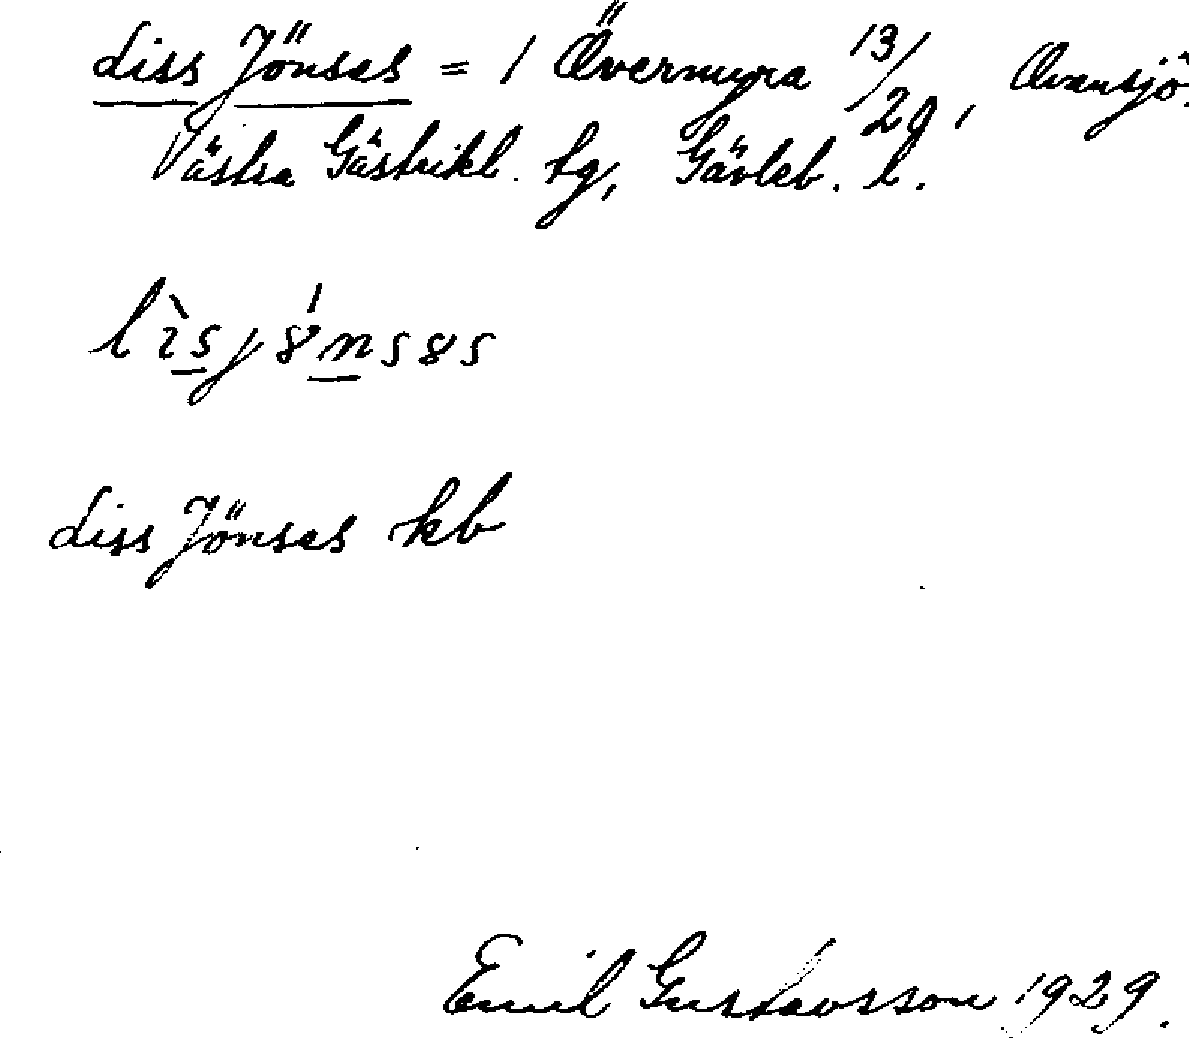 Liss Jönsas = 1 Övermyra 13/29, Ovansjö.
Västra Gästrikl. tg, Gävleb. l.
Liss Jönsas kb
Emil Gustavsson 1929.